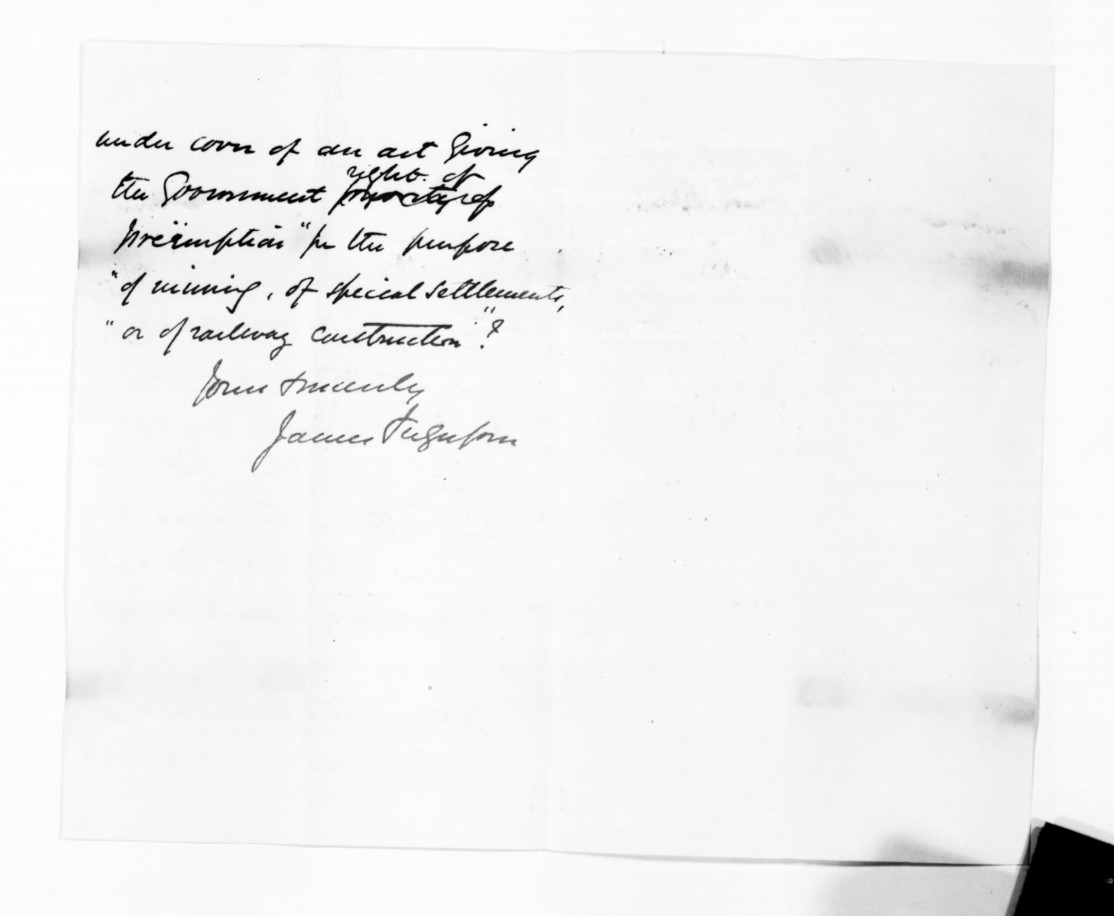 under cover of an act giving
right of
the Government priority of
preëmption "for the purpose
"of mining, of special settlements,
"or of railway construction"?
Yours sincerely
James Ferguson